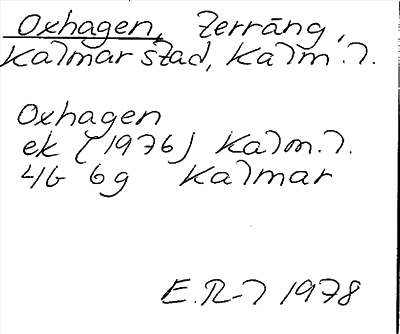 Oxhagen, Terräng,
Kalmar stad, Kalm. l.
Oxhagen
ek (1976) Kalm. l.
4G 6g Kalmar
E.R-l 1978